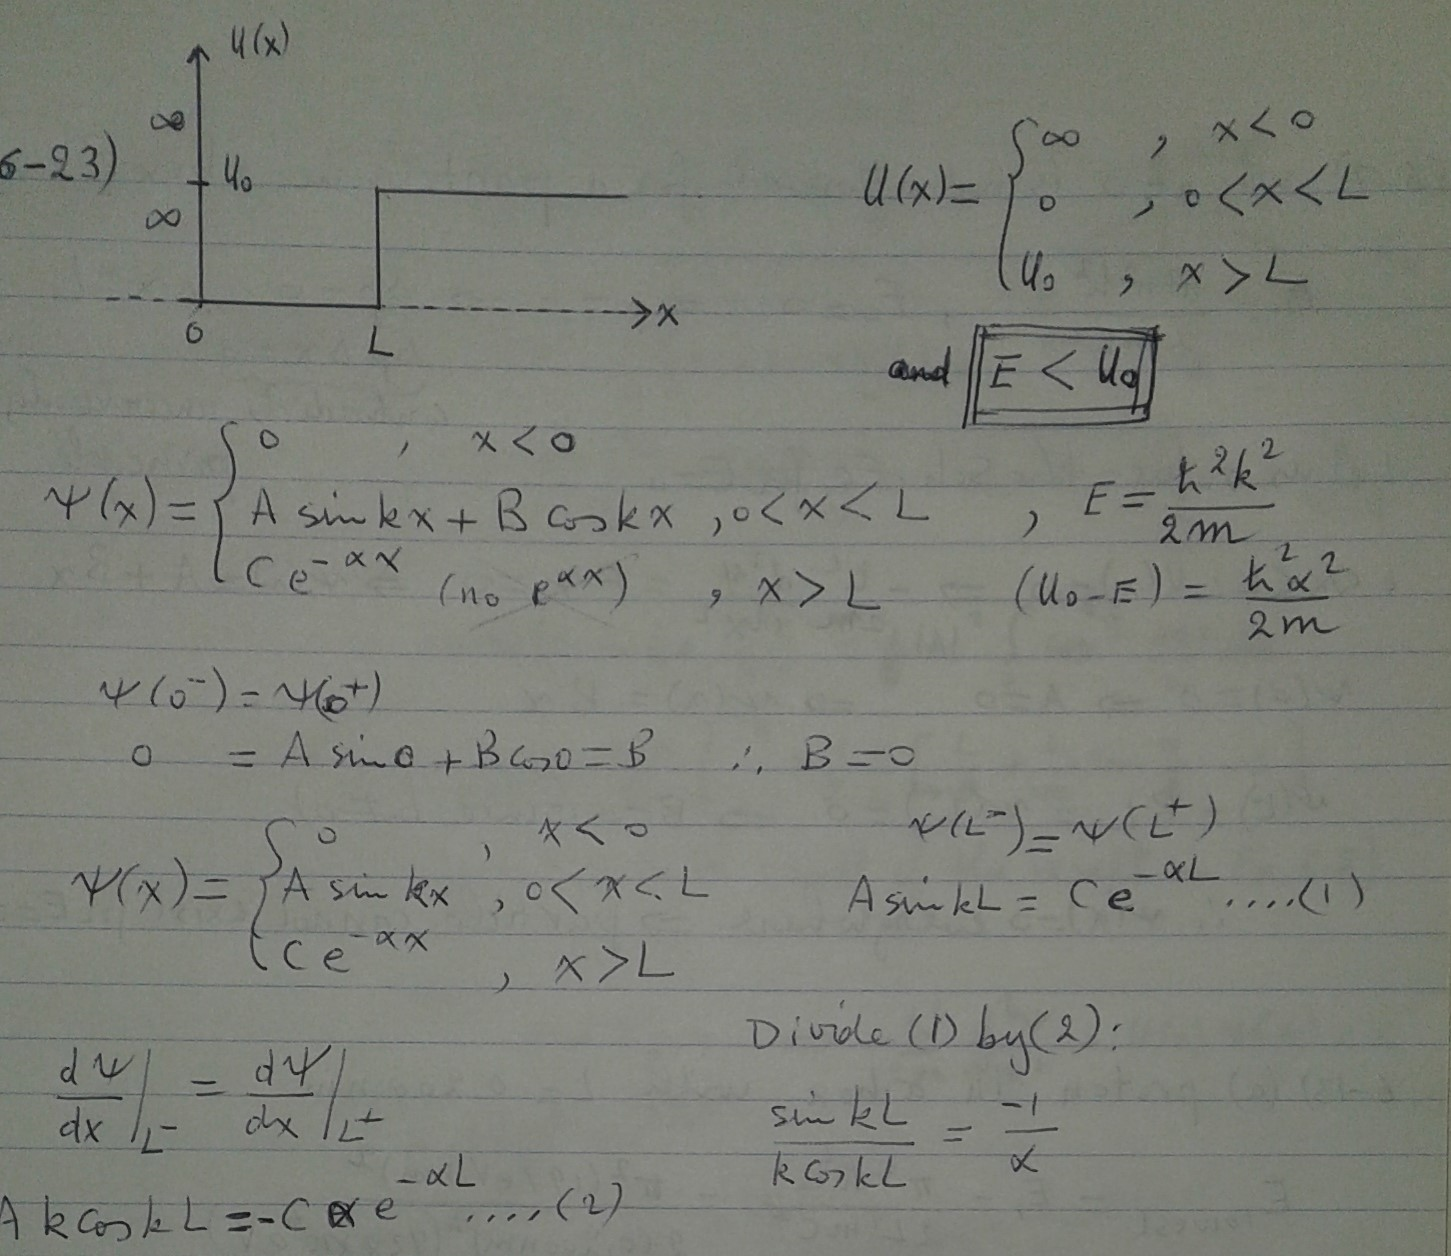 6-23)
U(x)
∞
U₀
∞
0
L
x
U(x) = { ∞ , x < 0
0 , 0 < x < L
U₀ , x > L
and E < U₀
Ψ(x) = { 0 , x < 0
A sin kx + B cos kx , 0 < x < L , E = ħ²k² / 2m
C e^(-αx) (no e^(αx)) , x > L (U₀ - E) = ħ²α² / 2m
Ψ(0⁻) = Ψ(0⁺)
0 = A sin 0 + B cos 0 = B ∴ B = 0
Ψ(x) = { 0 , x < 0
A sin kx , 0 < x < L
C e^(-αx) , x > L
Ψ(L⁻) = Ψ(L⁺)
A sin kL = C e^(-αL) ....(1)
dΨ/dx |L⁻ = dΨ/dx |L⁺
A k cos kL = -C α e^(-αL) ....(2)
Divide (1) by (2):
sin kL / k cos kL = -1 / α